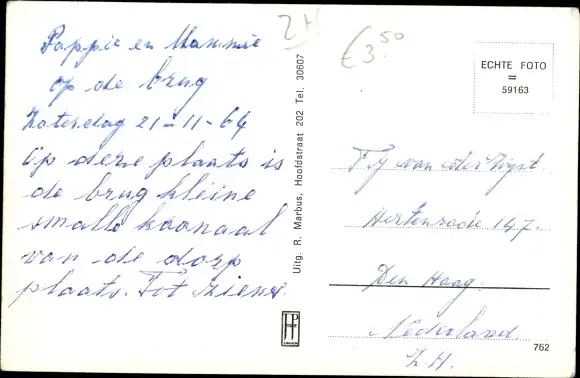 2H
€3.50
Pappie en Mammie
op de brug
Zaterdag 21-11-64
Op deze plaats is
de brug kleine
smalle kaanaal
van de dorp
plaats. Tot ziens.
Uitg. R. Marbus, Hoofdstraat 202 Tel. 30607
ECHTE FOTO
=
59163
van der
Hertenrade 147.
Den Haag
Nederland.
Z.H.
762